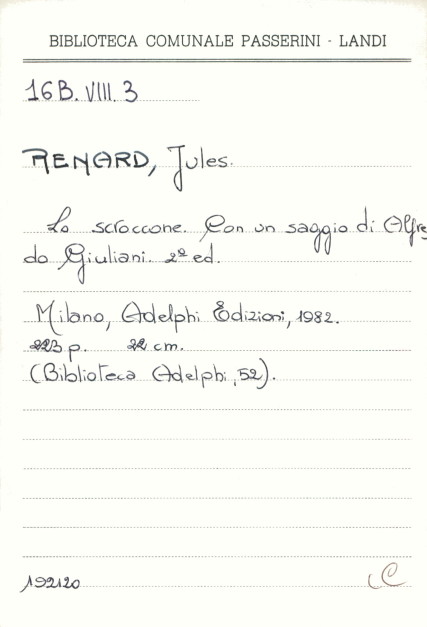 BIBLIOTECA COMUNALE PASSERINI - LANDI
16B. VIII. 3
RENARD, Jules.
Lo scroccone. Con un saggio di Alfre
do Giuliani. 2ª ed.
Milano, Adelphi Edizioni, 1982.
223 p. 22 cm.
(Biblioteca Adelphi, 52).
192120
C